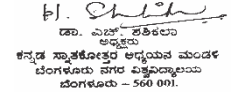 ಡಾ. ಎಚ್. ಶಶಿಕಲಾ
ಅಧ್ಯಕ್ಷರು
ಕನ್ನಡ ಸ್ನಾತಕೋತ್ತರ ಅಧ್ಯಯನ ಮಂಡಳಿ
ಬೆಂಗಳೂರು ನಗರ ವಿಶ್ವವಿದ್ಯಾಲಯ
ಬೆಂಗಳೂರು – 560 001.